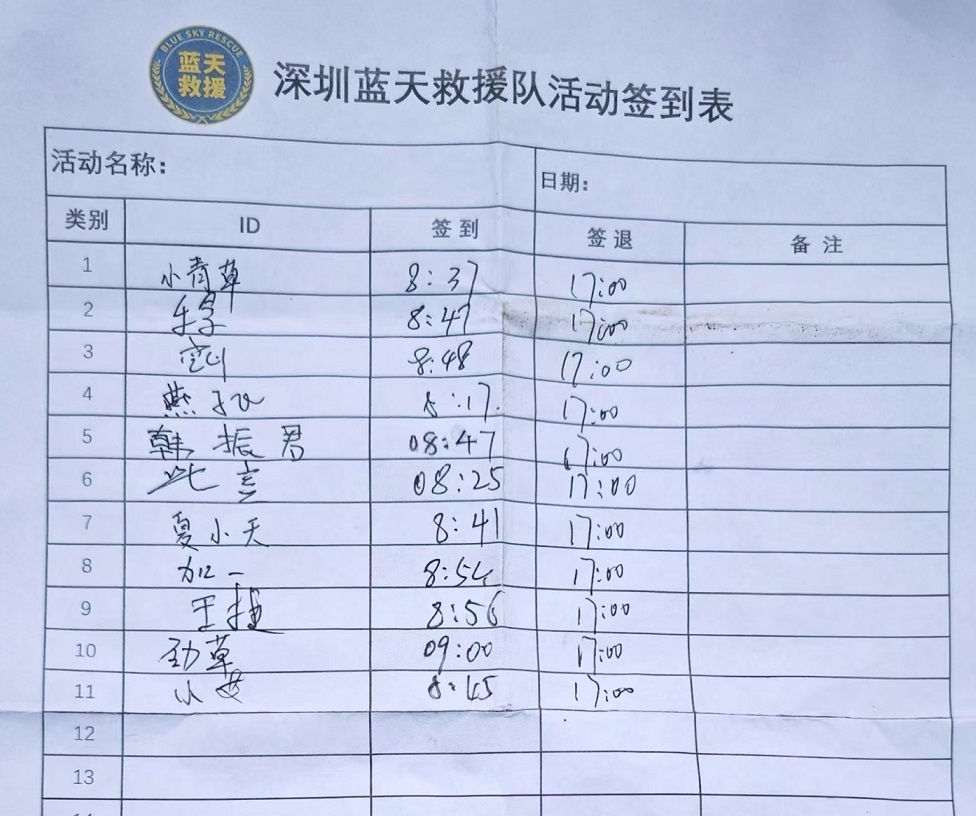 BLUE SKY RESCUE
蓝天
救援
深圳蓝天救援队活动签到表
活动名称： 日期：
类别 ID 签到 签退 备注
1 小青草 8:37 17:00
2 8:47 17:00
3 8:48 17:00
4 燕 8:17 17:00
5 韩振君 08:47 17:00
6 此言 08:25 17:00
7 夏小天 8:41 17:00
8 加一 8:54 17:00
9 王捷 8:56 17:00
10 劲草 09:00 17:00
11 小 8:45 17:00
12
13